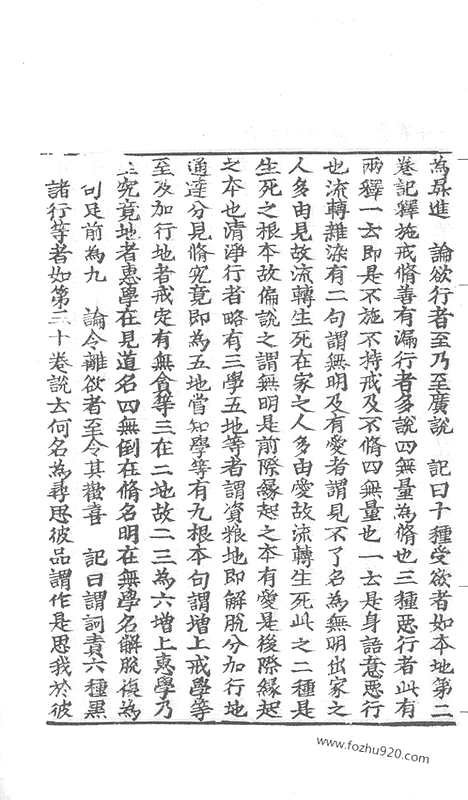 為昇進　論欲行者至乃至廣說　記曰十種受欲者如本地第二
卷記釋施戒脩善有漏行者多說四無量為脩也三種惡行者此有
兩釋一云即是不施不持戒及不脩四無量也一云是身語意惡行
也流轉雜染有二句謂無明及有愛者謂見不了名為無明出家之
人多由見故流轉生死在家之人多由愛故流轉生死此之二種是
生死之根本故偏說之謂無明是前際緣起之本有愛是後際緣起
之本也清淨行者略有三學五地等者謂資粮地即解脫分加行地
通達分見脩究竟即為五地當知學等有九根本句謂增上戒學等
至及加行地者戒定有無貪等三在二地故二三為六增上惠學乃
至究竟地者惠學在見道名四無倒在脩名明在無學名解脫複為
句足前為九　論令離欲者至令其歡喜　記曰謂訶責六種黑
諸行等者如第二十卷說云何名為尋思彼品謂作是思我於彼
www.fozhu920.com